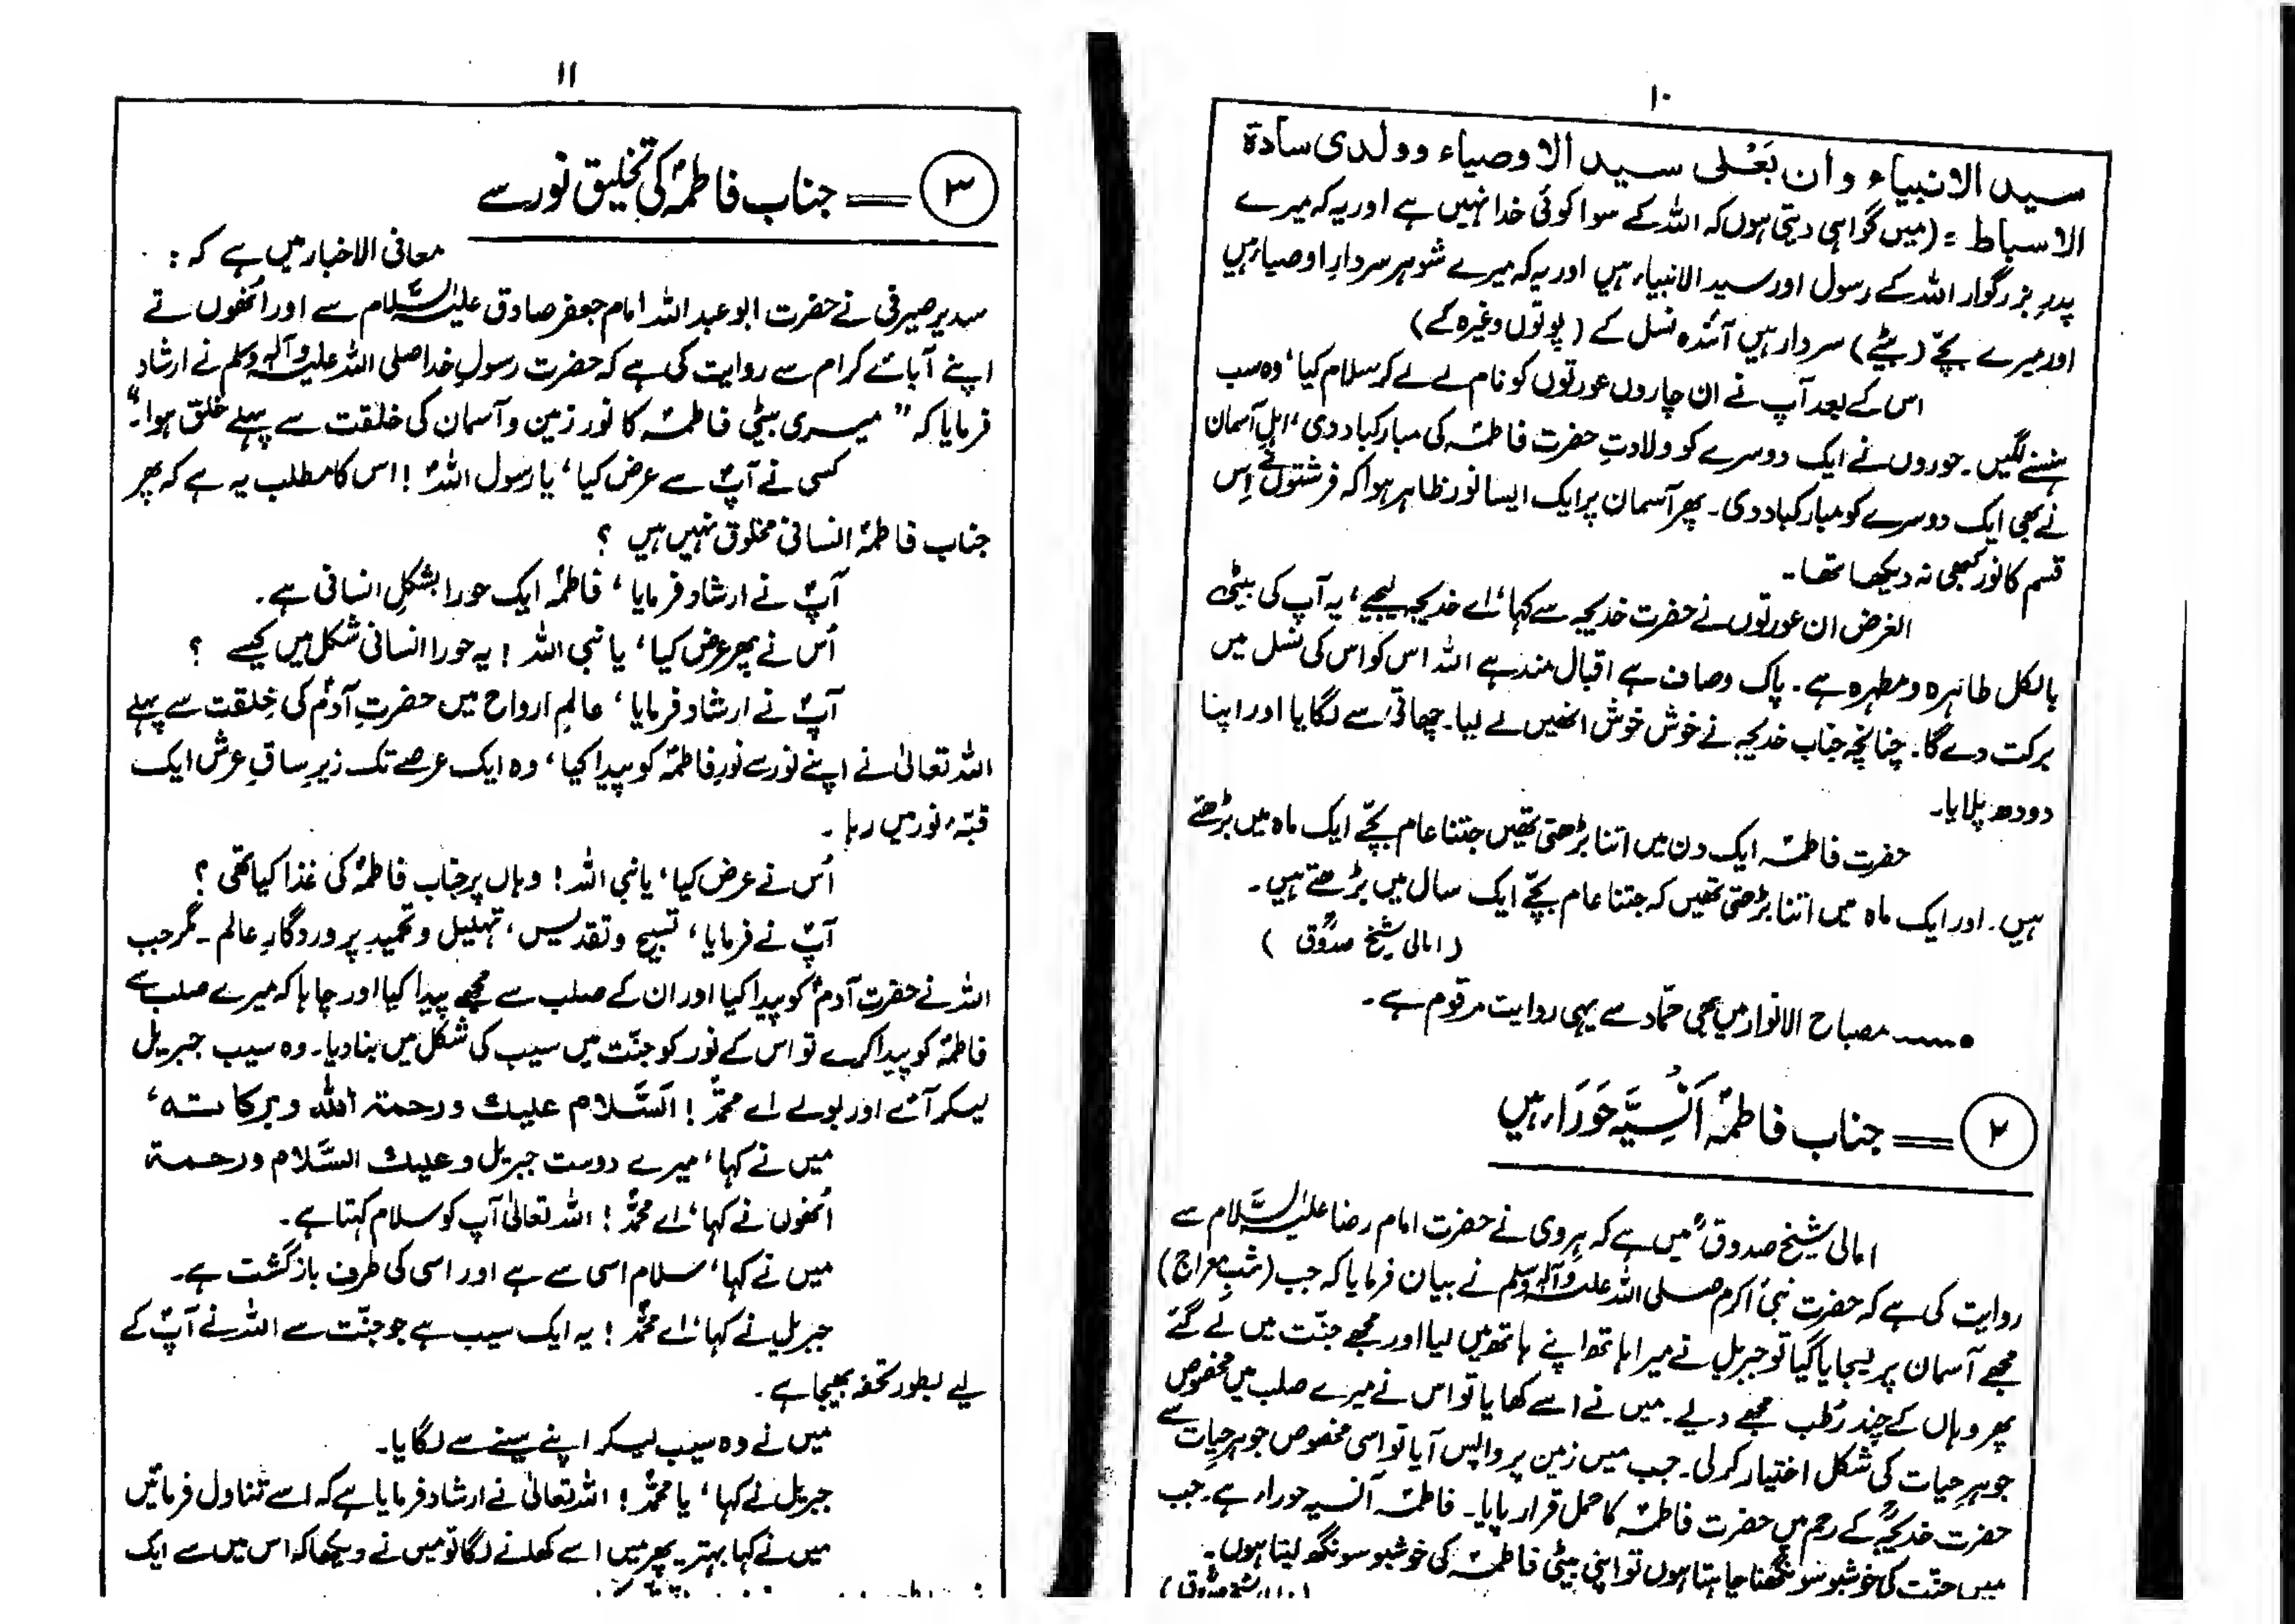 ۱۰
سید الانبیاء و ان بَعْلی سید الاوصیاء وولدی سادة
الاسباط = (میں گواہی دیتی ہوں کہ اللہ کے سوا کوئی خدا نہیں ہے اور یہ کہ میرے
پدر بزرگوار اللہ کے رسول اور سید الانبیاء ہیں اور یہ کہ میرے شوہر سردارِ اوصیاء ہیں
اور میرے بچّے (بیٹے) سردار ہیں آئندہ نسل کے (پوتوں وغیرہ کے)
اس کے بعد آپ نے ان چاروں عورتوں کو نام لے لے کر سلام کیا، وہ سب
ہنسنے لگیں۔ حوروں نے ایک دوسرے کو ولادتِ حضرت فاطمہؑ کی مبارکباد دی، اہلِ آسمان
نے بھی ایک دوسرے کو مبارکباد دی۔ پھر آسمان پر ایک ایسا نور ظاہر ہوا کہ فرشتوں نے اِس
قسم کا نور کبھی نہ دیکھا تھا۔
الغرض ان عورتوں نے حضرت خدیجہ سے کہا، اے خدیجہ لیجیے، یہ آپ کی بیٹی
بالکل طاہرہ و مطہرہ ہے۔ پاک و صاف ہے اقبال مند ہے اللہ اس کو اس کی نسل میں
برکت دے گا۔ چنانچہ جناب خدیجہ نے خوش خوش انھیں لے لیا۔ چھاتی سے لگایا اور اپنا
دودھ پلایا۔
حضرت فاطمہؑ ایک دن میں اتنا بڑھتی تھیں جتنا عام بچّے ایک ماہ میں بڑھتے
ہیں۔ اور ایک ماہ میں اتنا بڑھتی تھیں کہ جتنا عام بچّے ایک سال میں بڑھتے ہیں۔
(امالی شیخ صدوقؒ)
•۔۔۔۔ مصباح الانوار میں بھی حمّاد سے یہی روایت مرقوم ہے۔
۲ = جناب فاطمہؑ اَنْسِیَّہ حَوَرَاء ہیں
امالی شیخ صدوقؒ میں ہے کہ ہروی نے حضرت امام رضا علیہ السَّلام سے
روایت کی ہے کہ حضرت نبیٔ اکرم صلی اللہ علیہ وآلہٖ وسلم نے بیان فرمایا کہ جب (شبِ معراج)
مجھے آسمان پر لیجایا گیا تو جبریل نے میرا ہاتھ اپنے ہاتھ میں لیا اور مجھے جنّت میں لے گئے
پھر وہاں کے چند رُطَب مجھے دیے۔ میں نے اسے کھایا تو اس نے میرے صلب میں مخصوص
جوہرِ حیات کی شکل اختیار کر لی۔ جب میں زمین پر واپس آیا تو اسی مخصوص جوہرِ حیات سے
حضرت خدیجہؑ کے رحم میں حضرت فاطمہؑ کا حمل قرار پایا۔ فاطمہؑ اَنسیہ حوراء ہے۔ جب
میں جنّت کی خوشبو سونگھنا چاہتا ہوں تو اپنی بیٹی فاطمہؑ کی خوشبو سونگھ لیتا ہوں۔
۱۱
۳ = جناب فاطمہؑ کی تخلیق نور سے
معانی الاخبار میں ہے کہ :
سدیر صیرفی نے حضرت ابو عبد اللہ امام جعفر صادق علیہ السَّلام سے اور انھوں نے
اپنے آبائے کرام سے روایت کی ہے کہ حضرت رسولِ خدا صلی اللہ علیہ وآلہٖ وسلم نے ارشاد
فرمایا کہ ” میری بیٹی فاطمہؑ کا نور زمین و آسمان کی خلقت سے پہلے خلق ہوا۔“
کسی نے آپؐ سے عرض کیا، یا رسول اللہؐ ! اس کا مطلب یہ ہے کہ پھر
جناب فاطمہؑ انسانی مخلوق نہیں ہیں ؟
آپؐ نے ارشاد فرمایا، فاطمہؑ ایک حورا بشکلِ انسانی ہے۔
اُس نے پھر عرض کیا، یا نبی اللہ ! یہ حورا انسانی شکل میں کیسے ؟
آپؐ نے ارشاد فرمایا، عالمِ ارواح میں حضرتِ آدمؑ کی خِلقت سے پہلے
اللہ تعالیٰ نے اپنے نور سے نورِ فاطمہؑ کو پیدا کیا، وہ ایک عرصے تک زیرِ ساقِ عرش ایک
قبّۂ نور میں رہا۔
اُس نے عرض کیا، یا نبی اللہ ! وہاں پر جناب فاطمہؑ کی غذا کیا تھی ؟
آپؐ نے فرمایا، تسبیح و تقدیس، تہلیل و تحمیدِ پروردگارِ عالم۔ مگر جب
اللہ نے حضرت آدمؑ کو پیدا کیا اور ان کے صلب سے مجھے پیدا کیا اور چاہا کہ میرے صلب سے
فاطمہؑ کو پیدا کرے تو اس کے نور کو جنّت میں سیب کی شکل میں بنا دیا۔ وہ سیب جبریل
لیکر آئے اور بولے اے محمدؐ ! اَلسَّلام علیك ورحمۃ اللہ وبرکاتہ،
میں نے کہا، میرے دوست جبریل وعلیك السَّلام ورحمۃ
اُنھوں نے کہا، اے محمدؐ ! اللہ تعالیٰ آپ کو سلام کہتا ہے۔
میں نے کہا، سلام اسی سے ہے اور اسی کی طرف بازگشت ہے۔
جبریل نے کہا، اے محمدؐ ! یہ ایک سیب ہے جو جنّت سے اللہ نے آپؐ کے
لیے بطور تحفہ بھیجا ہے۔
میں نے وہ سیب لیکر اپنے سینے سے لگایا۔
جبریل نے کہا، یا محمدؐ ! اللہ تعالیٰ نے ارشاد فرمایا ہے کہ اسے تناول فرمائیں
میں نے کہا بہتر پھر میں اسے کھلنے لگا تو میں نے دیکھا کہ اس میں سے ایک